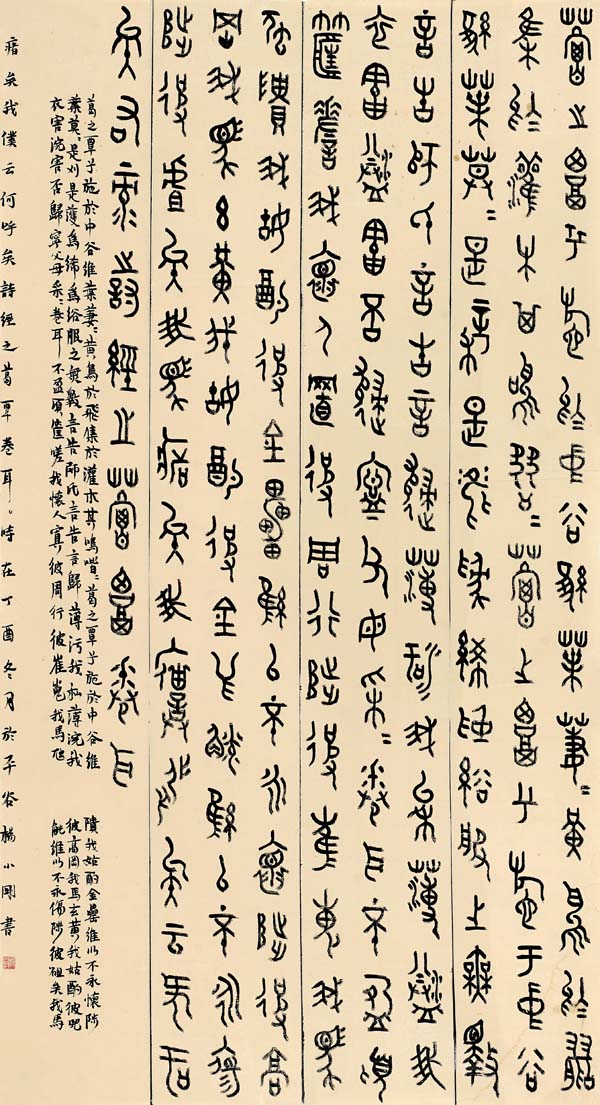 葛之覃兮施於中谷維葉萋=黃鳥於飛
集於灌木其鳴喈=葛之覃兮施于中谷
維葉莫=是刈是濩為絺為綌服之無斁
言告師氏言告言歸薄污我私薄浣我
衣害浣害否歸寧父母采=卷耳不盈頃
筐嗟我懷人寘彼周行陟彼崔嵬我馬
虺隤我姑酌彼金罍維以不永懷陟彼高
岡我馬玄黃我姑酌彼金兕觥維以不永傷
陟彼砠矣我馬瘏矣我痡僕矣云何吁
矣右录之詩經之葛覃卷耳
葛之覃兮施於中谷維葉萋=黃鳥於飛集於灌木其鳴喈=葛之覃兮施於中谷維
葉莫=是刈是濩為絺為綌服之無斁言告師氏言告言歸薄污我私薄浣我
衣害浣害否歸寧父母采=卷耳不盈頃筐嗟我懷人寘彼周行彼崔嵬我馬虺
隤我姑酌金罍維以不永懷陟
彼高岡我馬玄黃我姑酌彼兕
觥維以不永傷陟彼砠矣我馬
瘏矣我僕云何吁矣詩經之葛覃卷耳。時在丁酉冬月於子谷楊小剛書